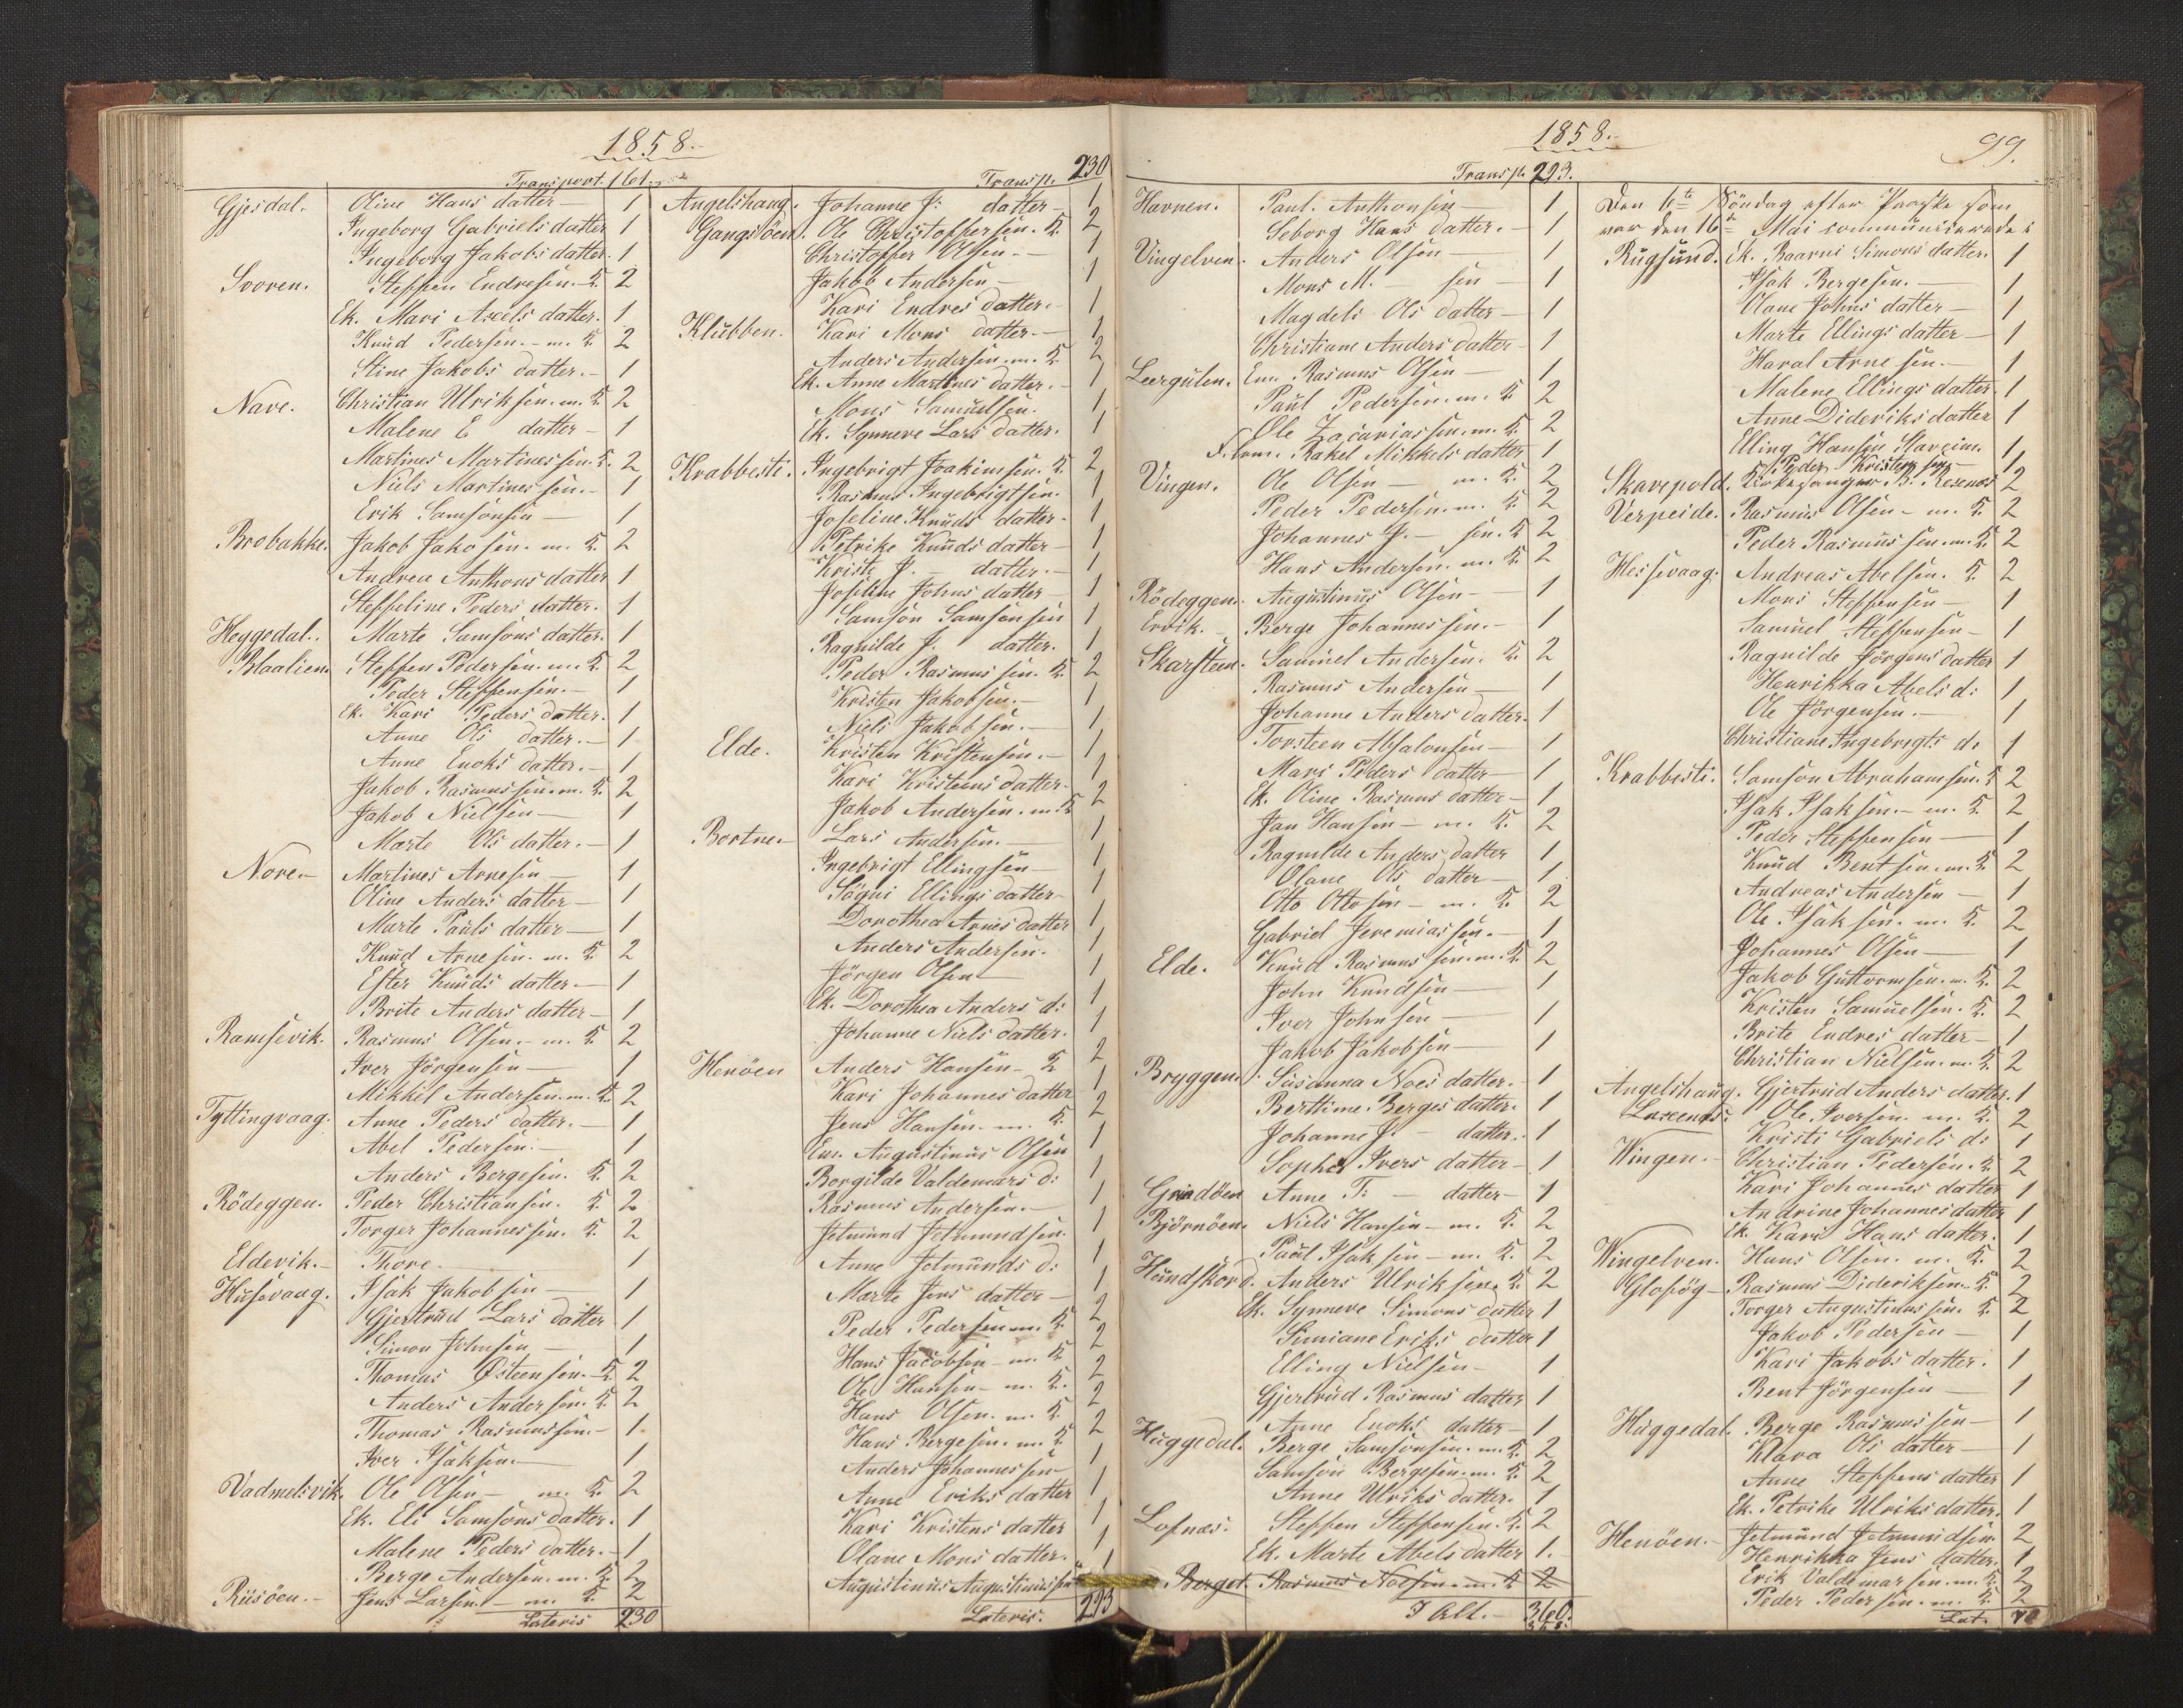 1858.
Transport. 161.
Gjesdal. Oline Hans datter — 1
Ingeborg Gabriels datter 1
Ingeborg Jakobs datter. 1
Svoren. Steffen Endresen. K. 2
Ek. Mari Axels datter. 1
Knud Pedersen. — m. K. 2
Stine Jakobs datter. — 1
Nave. Christian Ulriksen. m. K. 2
Malene E datter — 1
Martines Martinessen. K. 2
Niels Martinessen. — 1
Erik Samsonsen — 1
Brobakke. Jakob Jakosen. m. K. 2
Andrea Anthons datter 1
Steffeline Peders datter. 1
Heggedal. Marte Samsons datter. 1
Blaalien. Steffen Pedersen. m. K. 2
Peder Steffensen. — 1
Ek. Kari Peders datter. 1
Anne Ols datter. — 1
Anne Enoks datter. — 1
Jakob Rasmussen. m. K. 2
Jakob Nielsen — 1
Marte Ols datter. — 1
Nore. — Martines Arnesen — 1
Oline Anders datter — 1
Marte Pauls datter — 1
Knud Arnesen. m. K. 2
Ester Knuds datter. — 1
Brite Anders datter — 1
Ramsevik. Rasmus Olsen. — m. K. 2
Iver Jörgensen — 1
Mikkel Andersen. m. K. 2
Tyttingvaag. Anne Peders datter. — 1
Abel Pedersen. — 1
Anders Bergesen. K. 2
Rödeggen. Peder Christiansen. K. 2
Torger Johannessen. K. 2
Eldevik. — Thore. — 1
Husevaag. Isak Jakobsen — 1
Gjertrud Lars datter 1
Simon Johnsen — 1
Thomas Østeensen. K. 2
Anders Andersen. K. 2
Thomas Rasmussen. — 1
Iver Isaksen. — 1
Vadmelsvik. Ole Olsen — m. K. 2
Ek. Eli Samsons datter. 1
Malene Peders datter. — 1
Berge Andersen. m. K. 2
Riisöen. — Jens Larsen. — m. K. 2
Lateris 230
Transp. 230
Angelshaug. Johanne J. datter — 1
Gangsöen. Ole Christoffersen. K. 2
Christoffer Olsen. — 1
Jakob Andersen — 1
Kari Endres datter. — 1
Klubben. Kari Mons datter. — 1
Anders Andersen. m. K. 2
Ek. Anne Martines datter. — 1
Mons Samuelsen. 1
Ek. Synneve Lars datter. 1
Krabbesti. Ingebrigt Joakimsen. K. 2
Rasmus Ingebrigtsen. 1
Joseline Knuds datter. 1
Petrike Knuds datter — 1
Kristi J. — datter. — 1
Joseline Johns datter — 1
Samson Samsonsen 1
Ragnilde J. datter. 1
Peder Rasmussen. K. 2
Kristen Jakobsen. — 1
Niels Jakobsen. — 1
Elde. Kristen Kristensen. — 1
Kari Kristens datter — 1
Jakob Andersen. m. K. 2
Bortne. — Lars Andersen. — 1
Ingebrigt Ellingsen — 1
Sögni Ellings datter — 1
Dorothea Arnes datter 1
Anders Andersen. 1
Jörgen Olsen — 1
Ek. Dorothea Anders d: 1
Johanne Niels datter. 1
Henöen Anders Hansen — K. 2
Kari Johannes datter 1
Jens Hansen. — m. K. 2
Em. Augustinus Olsen 1
Borgilde Valdemars d: 1
Rasmus Andersen. — 1
Jetmund Jetmundsen. 1
Anne Jetmunds d: 1
Marte Jens datter — 1
Peder Pedersen m. K. 2
Hans Jacobsen — m. K. 2
Ole Hansen — m. K. 2
Hans Olsen. m. K. 2
Hans Bergesen. m. K. 2
Anders Johannessen — 1
Anne Eriks datter 1
Kari Kristens datter 1
Olane Mons datter. 1
Augustinus Augustinussen 1
Lateris. 293
1858.
99.
Transp. 293.
Havnen. Paul. Anthonsen — 1
Seborg Hans datter. — 1
Vingelven. Anders Olsen — 1
Mons M. — sen — 1
Magdeli Ols datter — 1
Christiane Anders datter — 1
Leergulen. Em. Rasmus Olsen — 1
Paul Pedersen. m. K. 2
Ole Zacariassen. m. K. 2
Rakel Mikkels datter 1
Vingen. Ole Olsen — m. K. 2
Peder Pedersen. m. K. 2
Johannes J. — sen. K. 2
Hans Andersen. m. K. 2
Rödeggen. Augustinus Olsen — 1
Ervik. — Berge Johannessen. — 1
Skarsteen. Samuel Andersen. K. 2
Rasmus Andersen — 1
Johanne Anders datter. 1
Torsteen Absalonsen — 1
Mari Peders datter — 1
Ek. Oline Rasmus datter — 1
Jan Hansen — m. K. 2
Ragnilde Anders datter 1
Olane Ols datter — 1
Otto Ottosen — m. K. 2
Gabriel Jeremiassen. — 1
Elde. Knud Rasmussen. m. K. 2
John Knudsen — 1
Iver Johnsen — 1
Jakob Jakobsen — 1
Bryggen. Susanna Noes datter. — 1
Berttime Berges datter. 1
Johanne J. — datter. 1
Sophe Ivers datter — 1
Grindöen Anne T: — datter — 1
Björnöen. Niels Hansen — m. K. 2
Paul Isaksen — m. K. 2
Hundskord. Anders Ulriksen. K. 2
Ek. Synneve Simons datter 1
Simiane Eriks datter 1
Elling Nielsen — 1
Gjertrud Rasmus datter 1
Anne Enoks datter — 1
Huggedal. Berge Samsonsen. m. K. 2
Samson Bergesen. m. K. 2
Anne Ulriks datter. 1
Lofnæs. Steffen Steffensen. K. 2
Ek. Marte Abels datter 1.
Berget. Rasmus Noesen. m. K. 2
I Alt. — 360.
Den 6te Söndag efter Paaske som
var den 16de Mai communicerede:
Rugsund. Ek. Baarni Simons datter. 1
Isak Bergesen. — 1
Olane Johns datter — 1
Marte Ellings datter — 1
Haral Arnesen. — 1
Malene Ellings datter. 1
Anne Dideriks datter 1
Elling Hansen 1
Peder Kristensen — 1
Skavepold. Kirkesanger B. 2
Verpeide. Rasmus Olsen — m. K. 2
Peder Rasmussen. m. K. 2
Hessevaag. Andreas Abelsen. K. 2
Mons Steffensen — 1
Samuel Steffensen — 1
Ragnilde Jörgens datter 1
Henrikka Abels d: 1
Ole Jörgensen. — 1
Christiane Ingebrigts d: 1
Krabbesti. Samson Abrahamsen. K. 2
Isak Isaksen. — m. K. 2
Peder Steffensen — 1
Knud Bentsen. m. K. 2
Andreas Andersen — 1
Ole Isaksen. m. K. 2
Johannes Olsen — 1
Jakob Guttormsen. m. K. 2
Kristen Samuelsen. K. 2
Brite Endres datter — 1
Christian Nielsen. m. K. 2
Angelshaug. Gjertrud Anders datter. 1
Ole Iversen. m. K. 2
Kristi Gabriels d: 1
Wingen. — Christian Pedersen. K. 2
Kari Johannes datter 1
Andrine Johannes datter 1
Ek. Kari Hans datter. 1
Wingelven. Hans Olsen. m. K. 2
Glosög — Rasmus Dideriksen. K. 2
Torger Augustinussen. K. 2
Jakob Pedersen — 1
Kari Jakobs datter. 1
Bent Jörgensen — 1
Huggedal. Berge Rasmussen — 1
Klara Ols datter — 1
Anne Steffens datter 1
Ek. Petrike Ulriks datter. 1
Henöen. — Jetmund Jetmundsen. 2
Henrikka Jens datter. 1
Erik Valdemarsen. m. K. 2
Peder Pedersen. m. K. 2
Lat. 72